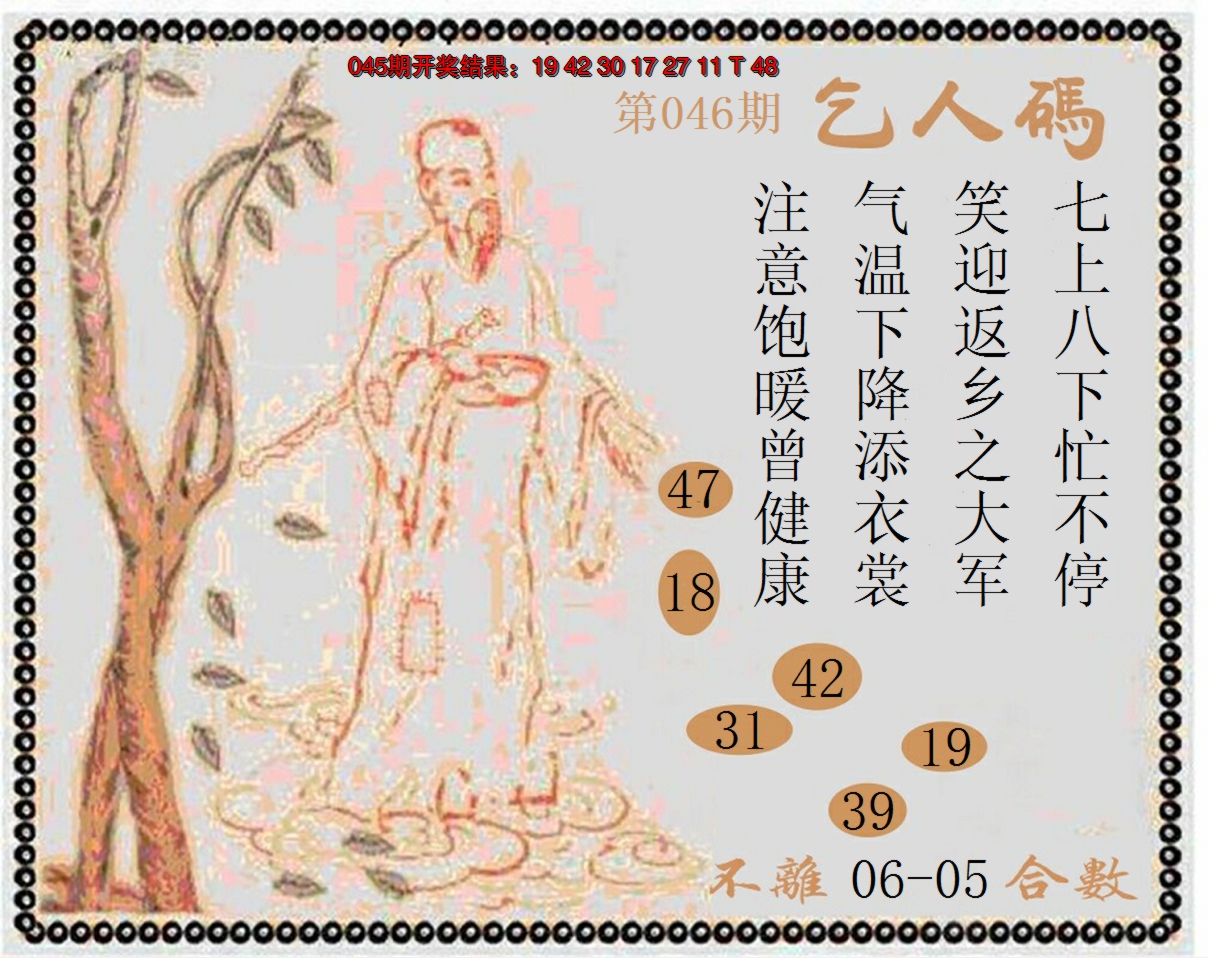 045期开奖结果：19 42 30 17 27 11 T 48
第046期 乞人碼
七上八下忙不停
笑迎返乡之大军
气温下降添衣裳
注意饱暖曾健康
47
18
42
31
19
39
不離 06-05 合數